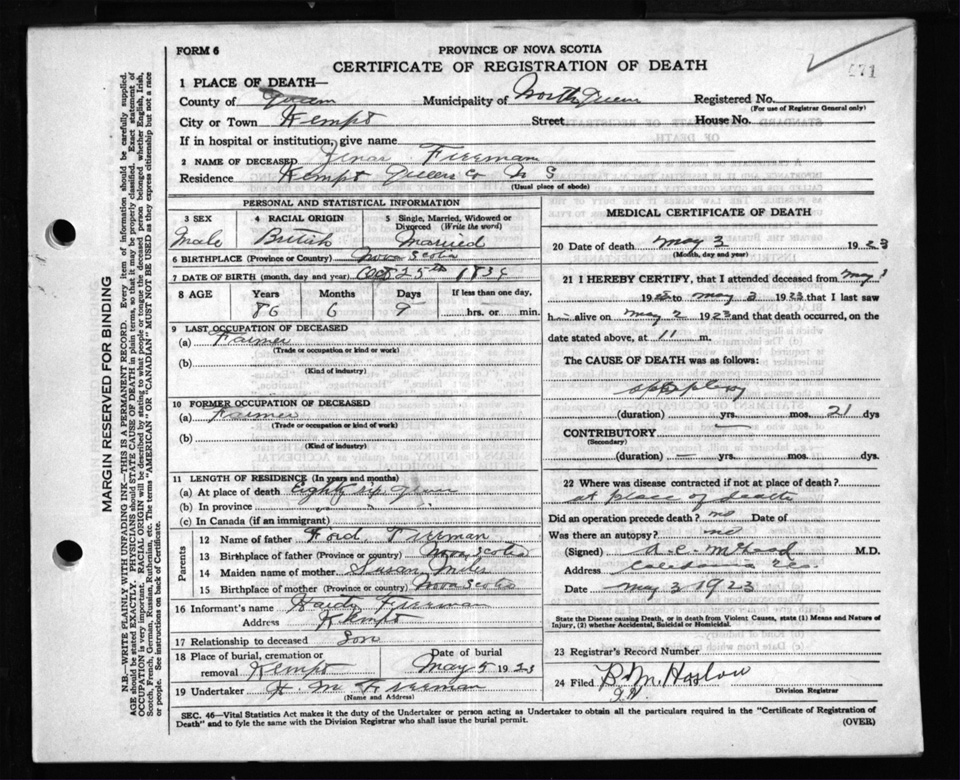 FORM 6
PROVINCE OF NOVA SCOTIA
CERTIFICATE OF REGISTRATION OF DEATH
671
1 PLACE OF DEATH—
County of Queen Municipality of North Queens Registered No.
(For use of Registrar General only)
City or Town Kempt Street: House No.
If in hospital or institution, give name
2 NAME OF DECEASED Freeman
Residence Kempt Queens Co N S
(Usual place of abode)
PERSONAL AND STATISTICAL INFORMATION
3 SEX 4 RACIAL ORIGIN 5 Single, Married, Widowed or Divorced (Write the word)
Male British Married
6 BIRTHPLACE (Province or Country) Nova Scotia
7 DATE OF BIRTH (month, day and year) Oct 25th
8 AGE Years Months Days If less than one day,
86 6 9 hrs. or min.
9 LAST OCCUPATION OF DECEASED
(a) Farmer
(Trade or occupation or kind or work)
(b)
(Kind of industry)
10 FORMER OCCUPATION OF DECEASED
(a) Farmer
(Trade or occupation or kind of work)
(b)
(Kind of industry)
11 LENGTH OF RESIDENCE (In years and months)
(a) At place of death Eighty six
(b) In province
(c) In Canada (if an immigrant)
Parents
12 Name of father Ford Freeman
13 Birthplace of father (Province or country) Nova Scotia
14 Maiden name of mother Susan
15 Birthplace of mother (Province or country) Nova Scotia
16 Informant's name Freeman
Address Kempt
17 Relationship to deceased Son
18 Place of burial, cremation or removal Kempt Date of burial May 5 1923
19 Undertaker H. M. Freeman
(Name and Address)
MEDICAL CERTIFICATE OF DEATH
20 Date of death May 3 1923
(Month, day and year)
21 I HEREBY CERTIFY, that I attended deceased from May
1923 to May 3 1923 that I last saw
h alive on May 2 1923 and that death occurred, on the
date stated above, at 11 m.
The CAUSE OF DEATH was as follows:
apoplexy
(duration) yrs. mos. 21 dys
CONTRIBUTORY
(Secondary)
(duration) — yrs. mos. dys.
22 Where was disease contracted if not at place of death?
at place of death
Did an operation precede death? no Date of
Was there an autopsy? no
(Signed) M.D.
Address Caledonia
Date May 3 1923
State the Disease causing Death, or in death from Violent Causes, state (1) Means and Nature of Injury, (2) whether Accidental, Suicidal or Homicidal.
23 Registrar's Record Number
24 Filed
Division Registrar
SEC. 46—Vital Statistics Act makes it the duty of the Undertaker or person acting as Undertaker to obtain all the particulars required in the "Certificate of Registration of
Death" and to fyle the same with the Division Registrar who shall issue the burial permit.
(OVER)
MARGIN RESERVED FOR BINDING
N.B.—WRITE PLAINLY WITH UNFADING INK—THIS IS A PERMANENT RECORD. Every item of information should be carefully supplied.
AGE should be stated EXACTLY. PHYSICIANS should STATE CAUSE OF DEATH in plain terms, so that it may be properly classified. Exact statement of
OCCUPATION is very important. RACIAL ORIGIN will be described by stating to what people or tongue the deceased person belonged whether English, Irish,
Scotch, French, German, Russian, Ruthenian, etc. The terms "AMERICAN" OR "CANADIAN" MUST NOT BE USED as they express citizenship but not a race
or people. See instructions on back of Certificate.